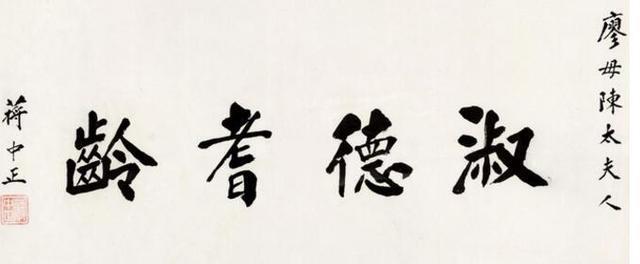 廖母陳太夫人
淑德耆齡
蔣中正